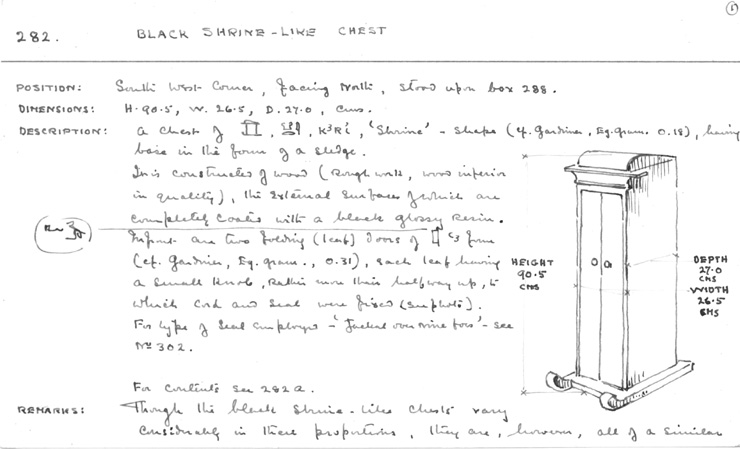 ①
282. BLACK SHRINE-LIKE CHEST
POSITION: South West Corner, facing North, stood upon box 288.
DIMENSIONS: H. 90.5, W. 26.5, D. 27.0, cms.
DESCRIPTION: A chest of , K3Rí, 'Shrine' - shape (cf. Gardiner, Eg. gram. O.18), having
base in the form of a sledge.
It is constructed of wood (rough work, wood inferior
in quality), the external surfaces of which are
completely coated with a black glossy resin.
In front are two folding (leaf) doors of form
(cf. Gardiner, Eg. gram., O.31), each leaf having
a small knob, rather more than halfway up, to
which cord and seal were fixed (see photo).
For type of seal employed - 'Jackal over nine foes' - see
No 302.
For contents see 282a.
REMARKS: Though the black shrine-like chests vary
considerably in their proportions, they are, however, all of a similar
HEIGHT
90.5
CMS
DEPTH
27.0
CMS
WIDTH
26.5
CMS